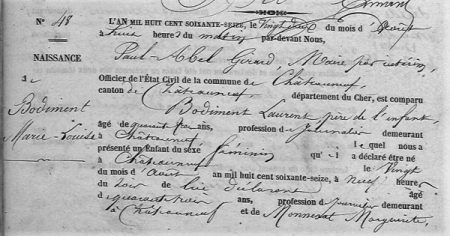 N° 48
NAISSANCE
de
Bodiment
Marie-Louise
L'AN MIL HUIT CENT SOIXANTE-SEIZE, le Vingt deux du mois d'Août
à huit heures du matin par-devant Nous,
Paul-Abel Girard, Maire par intérim,
Officier de l'État Civil de la commune de Châteauneuf
canton de Châteauneuf département du Cher, est comparu
Bodiment Laurent, père de l'enfant,
âgé de ans, profession de Journalier demeurant
à Châteauneuf lequel nous a
présenté un Enfant du sexe féminin qu' il a déclaré être né
à Châteauneuf le Vingt
du mois d'août an mil huit cent soixante-seize, à neuf heures
du soir de lui déclarant âgé
d ans, profession de journalier demeurant
à Châteauneuf et de Marguerite,